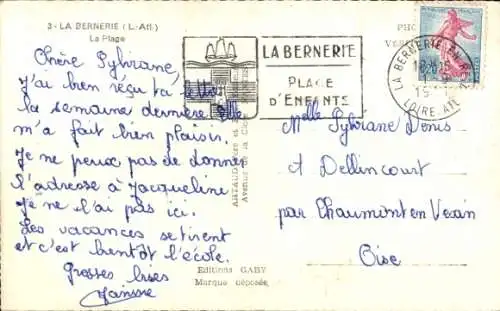 3 - LA BERNERIE (L.-Atl.)
La Plage
Chère Sylviane,
J'ai bien reçu ta lettre
la semaine dernière elle
m'a fait bien plaisir.
Je ne peux pas te donner
l'adresse à Jacqueline
Je ne l'ai pas ici.
Les vacances se tirent
et c'est bientôt l'école.
Grosses bises
Editions GABY
Marque déposée
LA BERNERIE
PLAGE
D'ENFANTS
LA BERNERIE EN
LOIRE ATL.
Melle Sylviane Denis
à Dellincourt
par Chaumont en Vexin
Oise